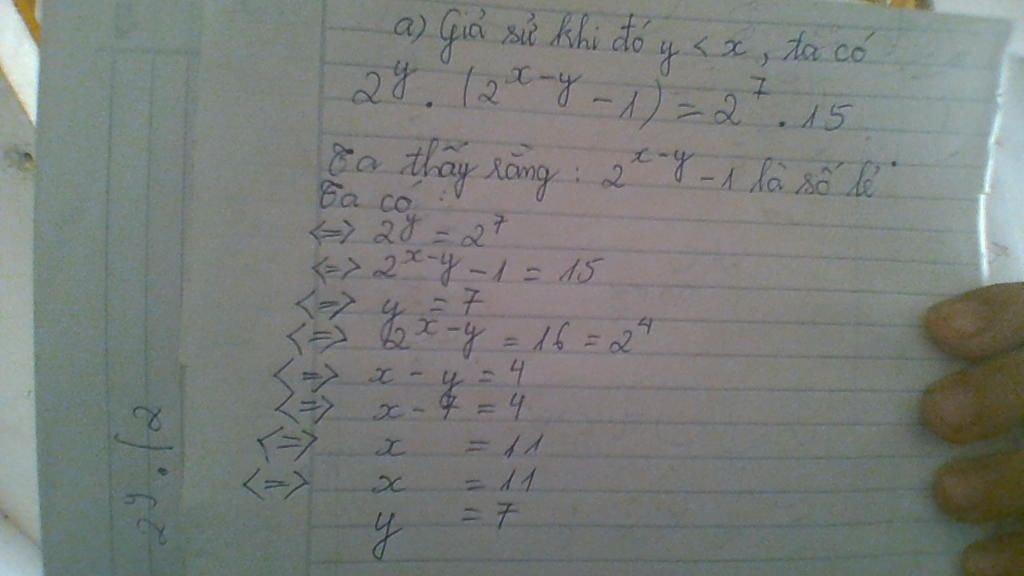 a) Giả sử khi đó y < x, ta có
2^y . (2^{x-y} - 1) = 2^7 . 15
Ta thấy rằng : 2^{x-y} - 1 là số lẻ.
Ta có :
<=> 2^y = 2^7
<=> 2^{x-y} - 1 = 15
<=> y = 7
<=> 2^{x-y} = 16 = 2^4
<=> x - y = 4
<=> x - 7 = 4
<=> x = 11
<=> x = 11
y = 7
2^y . (2